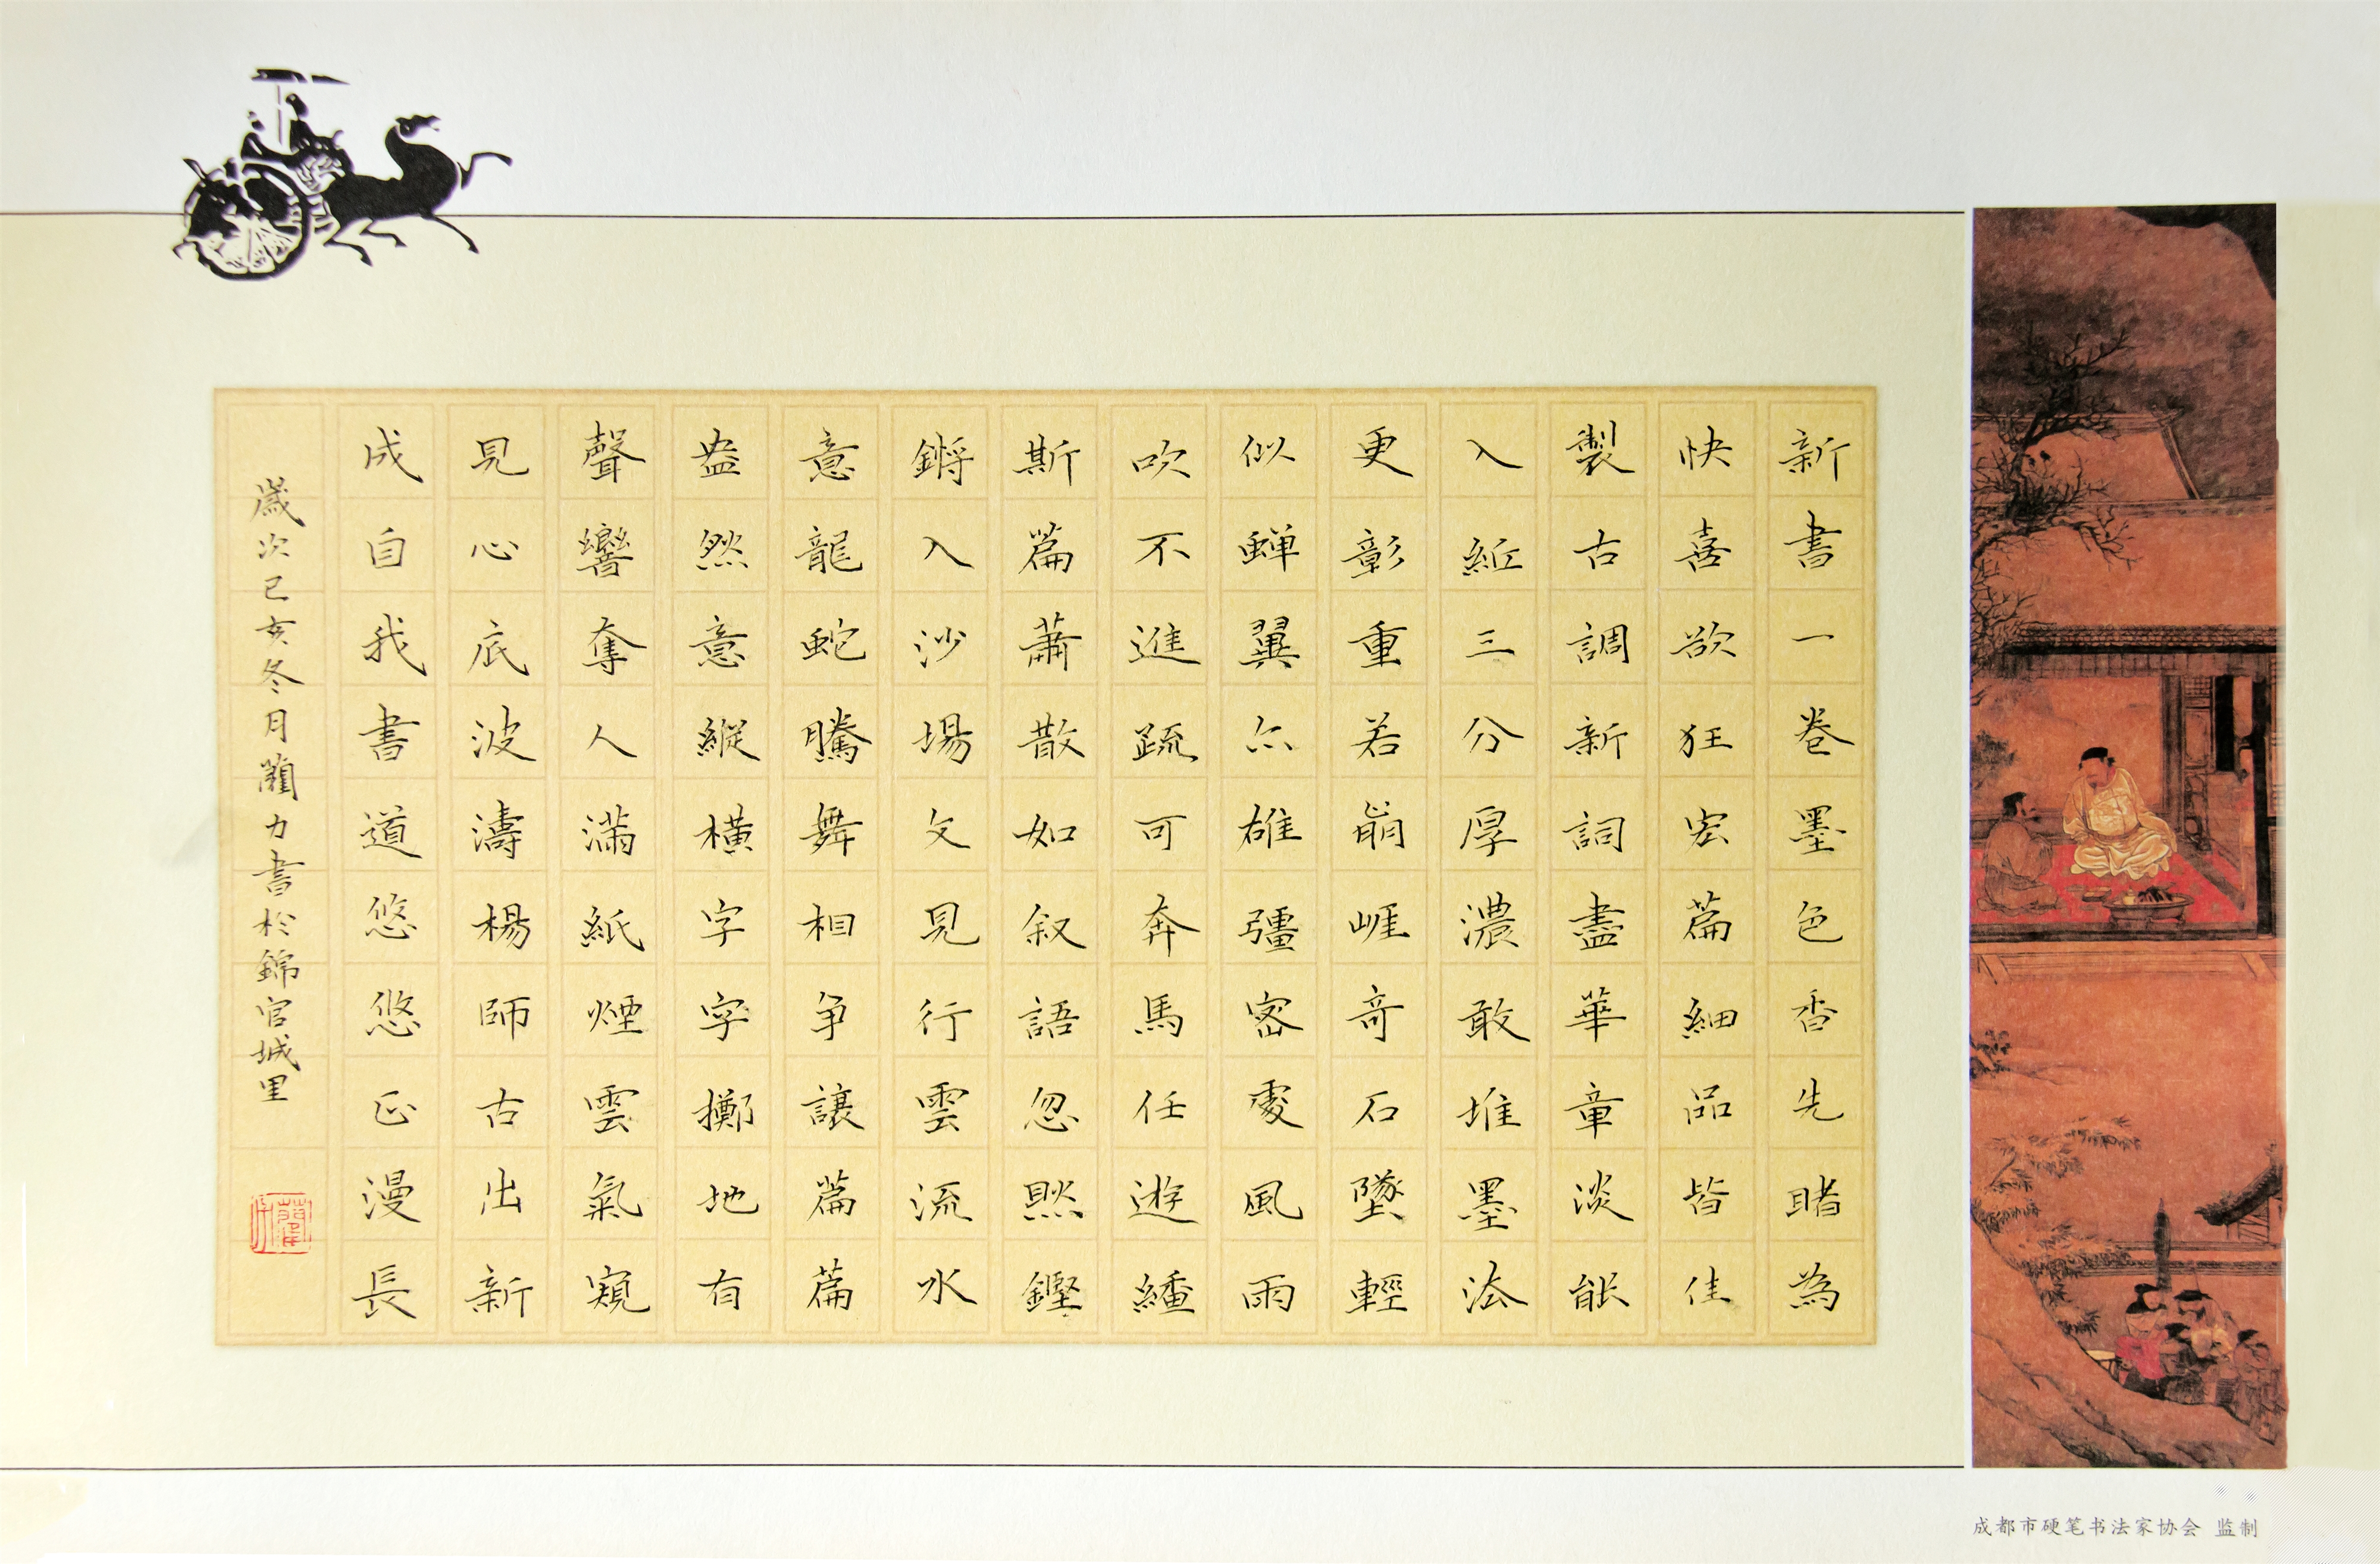 新書一卷墨色香先睹為
快喜欲狂宏篇細品皆佳
製古調新詞盡華章淡能
入紙三分厚濃敢堆墨法
更彰重若崩崖奇石墜輕
似蟬翼亦雄彊密處風雨
吹不進疏可奔馬任遊繙
斯篇蕭散如叙語忽然鏗
鏘入沙場文見行雲流水
意龍蛇騰舞相爭讓篇篇
盎然意縱橫字字擲地有
聲響奪人滿紙煙雲氣窺
見心底波濤楊師古出新
成自我書道悠悠正漫長
歲次己亥冬月藺力書於錦官城里
成都市硬笔书法家协会 监制